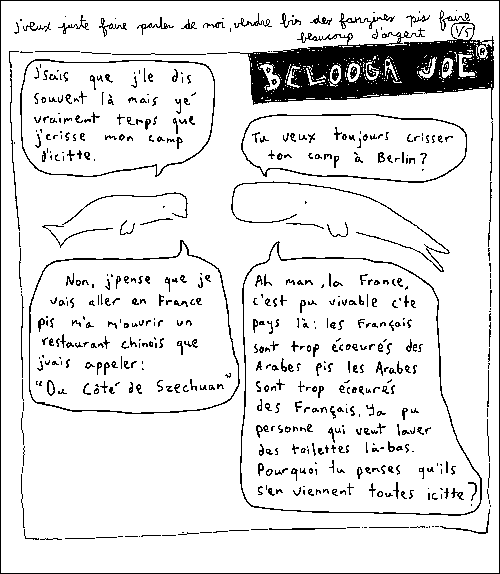 j'veux juste faire parler de moi, vendre bin des fanzines pis faire
beaucoup d'argent 1/5
BELOOGA JOE
J'sais que j'le dis
souvent là mais yé
vraiment temps que
j'crisse mon camp
d'icitte.
Tu veux toujours crisser
ton camp à Berlin?
Non, j'pense que je
vais aller en France
pis m'a m'ouvrir un
restaurant chinois que
j'vais appeler:
"Du Côté de Szechuan"
Ah man, la France,
c'est pu vivable c'te
pays là: les Français
sont trop écoeurés des
Arabes pis les Arabes
sont trop écoeurés
des Français. Ya pu
personne qui veut laver
des toilettes là-bas.
Pourquoi tu penses qu'ils
s'en viennent toutes icitte?